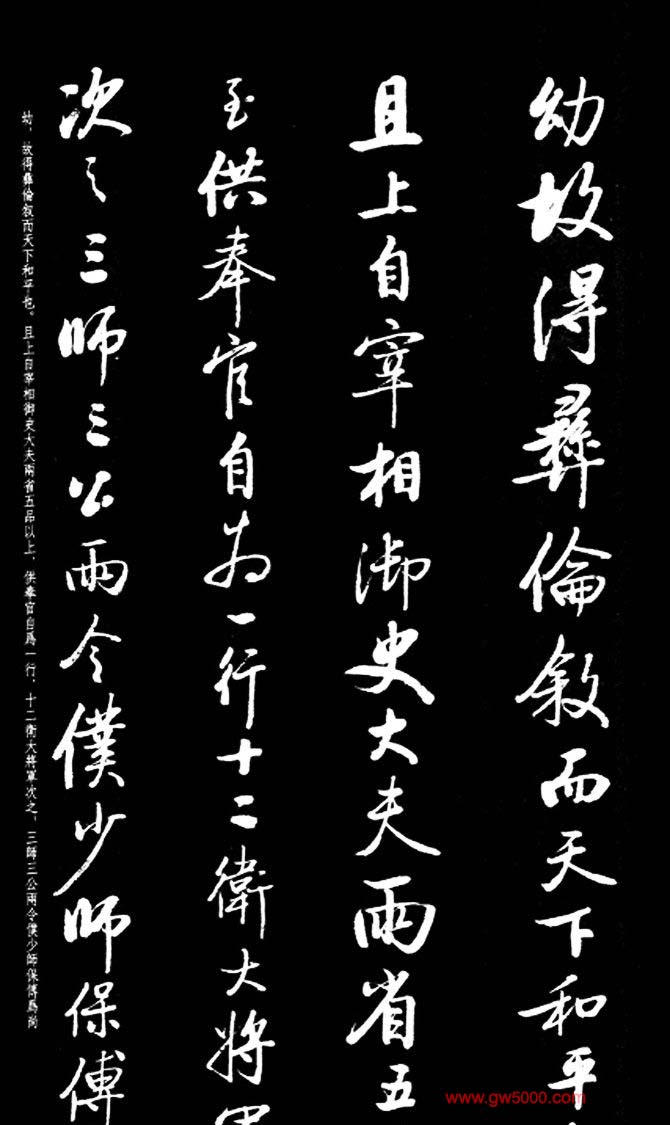 幼故得彝倫敘而天下和平
且上自宰相御史大夫兩省五
至供奉官自為一行十二衛大將軍
次之三師三公兩令僕少師保傅
幼，故得彝倫叙而天下和平也。且上自宰相御史大夫兩省五品以上，供奉官自爲一行，十二衛大將軍次之，三師三公兩令僕少師保傅爲尚
www.gw5000.com